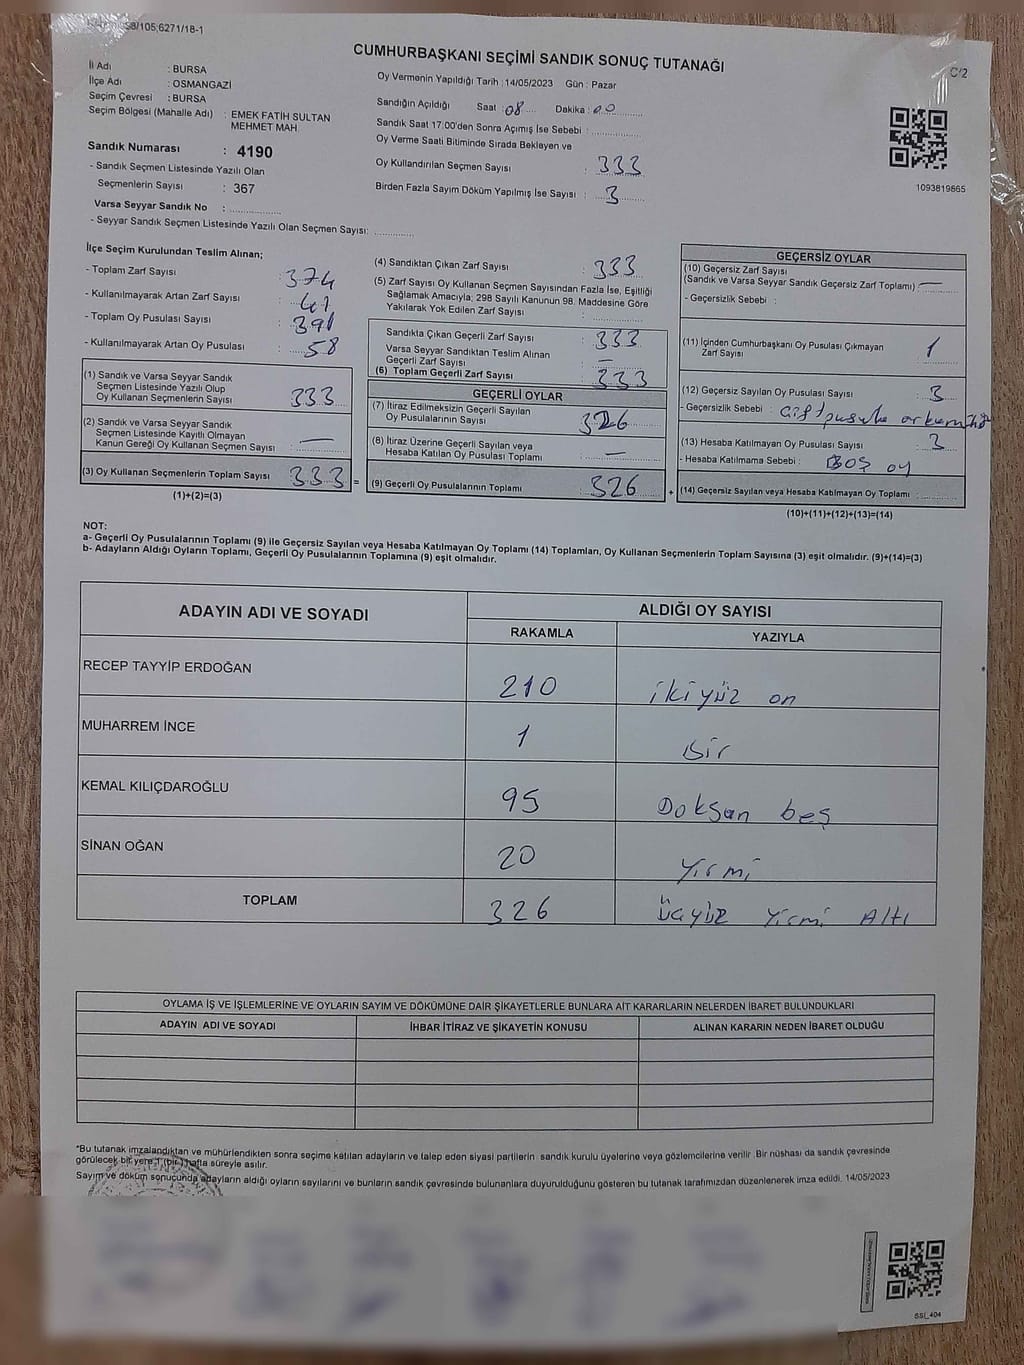 CUMHURBAŞKANI SEÇİMİ SANDIK SONUÇ TUTANAĞI
C/2
İl Adı : BURSA
İlçe Adı : OSMANGAZİ
Seçim Çevresi : BURSA
Seçim Bölgesi (Mahalle Adı) : EMEK FATİH SULTAN
MEHMET MAH
Sandık Numarası : 4190
- Sandık Seçmen Listesinde Yazılı Olan
Seçmenlerin Sayısı : 367
Varsa Seyyar Sandık No : ................
- Seyyar Sandık Seçmen Listesinde Yazılı Olan Seçmen Sayısı: ............
Oy Vermenin Yapıldığı Tarih : 14/05/2023 Gün : Pazar
Sandığın Açıldığı Saat : 08 Dakika : 00
Sandık Saat 17:00'den Sonra Açımış İse Sebebi : ................
Oy Verme Saati Bitiminde Sırada Bekleyen ve
Oy Kullandırılan Seçmen Sayısı : 333
Birden Fazla Sayım Döküm Yapılmış İse Sayısı : 3
1093819865
İlçe Seçim Kurulundan Teslim Alınan;
- Toplam Zarf Sayısı : 374
- Kullanılmayarak Artan Zarf Sayısı : 41
- Toplam Oy Pusulası Sayısı : 391
- Kullanılmayarak Artan Oy Pusulası : 58
(1) Sandık ve Varsa Seyyar Sandık
Seçmen Listesinde Yazılı Olup
Oy Kullanan Seçmenlerin Sayısı : 333
(2) Sandık ve Varsa Seyyar Sandık
Seçmen Listesinde Kayıtlı Olmayan
Kanun Gereği Oy Kullanan Seçmen Sayısı : —
(3) Oy Kullanan Seçmenlerin Toplam Sayısı : 333 =
(1)+(2)=(3)
(4) Sandıktan Çıkan Zarf Sayısı : 333
(5) Zarf Sayısı Oy Kullanan Seçmen Sayısından Fazla İse, Eşitliği
Sağlamak Amacıyla; 298 Sayılı Kanunun 98. Maddesine Göre
Yakılarak Yok Edilen Zarf Sayısı : ................
Sandıkta Çıkan Geçerli Zarf Sayısı : 333
Varsa Seyyar Sandıktan Teslim Alınan
Geçerli Zarf Sayısı : —
(6) Toplam Geçerli Zarf Sayısı : 333
GEÇERLİ OYLAR
(7) İtiraz Edilmeksizin Geçerli Sayılan
Oy Pusulalarının Sayısı : 326
(8) İtiraz Üzerine Geçerli Sayılan veya
Hesaba Katılan Oy Pusulası Toplamı : —
(9) Geçerli Oy Pusulalarının Toplamı : 326 +
GEÇERSİZ OYLAR
(10) Geçersiz Zarf Sayısı
(Sandık ve Varsa Seyyar Sandık Geçersiz Zarf Toplamı) : —
- Geçersizlik Sebebi :
(11) İçinden Cumhurbaşkanı Oy Pusulası Çıkmayan
Zarf Sayısı : 1
(12) Geçersiz Sayılan Oy Pusulası Sayısı : 3
- Geçersizlik Sebebi : Çift pusula
(13) Hesaba Katılmayan Oy Pusulası Sayısı : 3
- Hesaba Katılmama Sebebi : BOŞ oy
(14) Geçersiz Sayılan veya Hesaba Katılmayan Oy Toplamı : ............
(10)+(11)+(12)+(13)=(14)
NOT:
a- Geçerli Oy Pusulalarının Toplamı (9) ile Geçersiz Sayılan veya Hesaba Katılmayan Oy Toplamı (14) Toplamları, Oy Kullanan Seçmenlerin Toplam Sayısına (3) eşit olmalıdır. (9)+(14)=(3)
b- Adayların Aldığı Oyların Toplamı, Geçerli Oy Pusulalarının Toplamına (9) eşit olmalıdır.
ADAYIN ADI VE SOYADI
ALDIĞI OY SAYISI
RAKAMLA YAZIYLA
RECEP TAYYİP ERDOĞAN 210 ikiyüz on
MUHARREM İNCE 1 Bir
KEMAL KILIÇDAROĞLU 95 Doksan beş
SİNAN OĞAN 20 Yirmi
TOPLAM 326 Üçyüz Yirmi Altı
OYLAMA İŞ VE İŞLEMLERİNE VE OYLARIN SAYIM VE DÖKÜMÜNE DAİR ŞİKAYETLERLE BUNLARA AİT KARARLARIN NELERDEN İBARET BULUNDUKLARI
ADAYIN ADI VE SOYADI İHBAR İTİRAZ VE ŞİKAYETİN KONUSU ALINAN KARARIN NEDEN İBARET OLDUĞU
*Bu tutanak imzalandıktan ve mühürlendikten sonra seçime katılan adayların ve talep eden siyasi partilerin sandık kurulu üyelerine veya gözlemcilerine verilir .Bir nüshası da sandık çevresinde
görülecek bir yere 1 (bir) hafta süreyle asılır.
Sayım ve döküm sonucunda adayların aldığı oyların sayılarını ve bunların sandık çevresinde bulunanlara duyurulduğunu gösteren bu tutanak tarafımızdan düzenlenerek imza edildi. 14/05/2023
SSİ_404